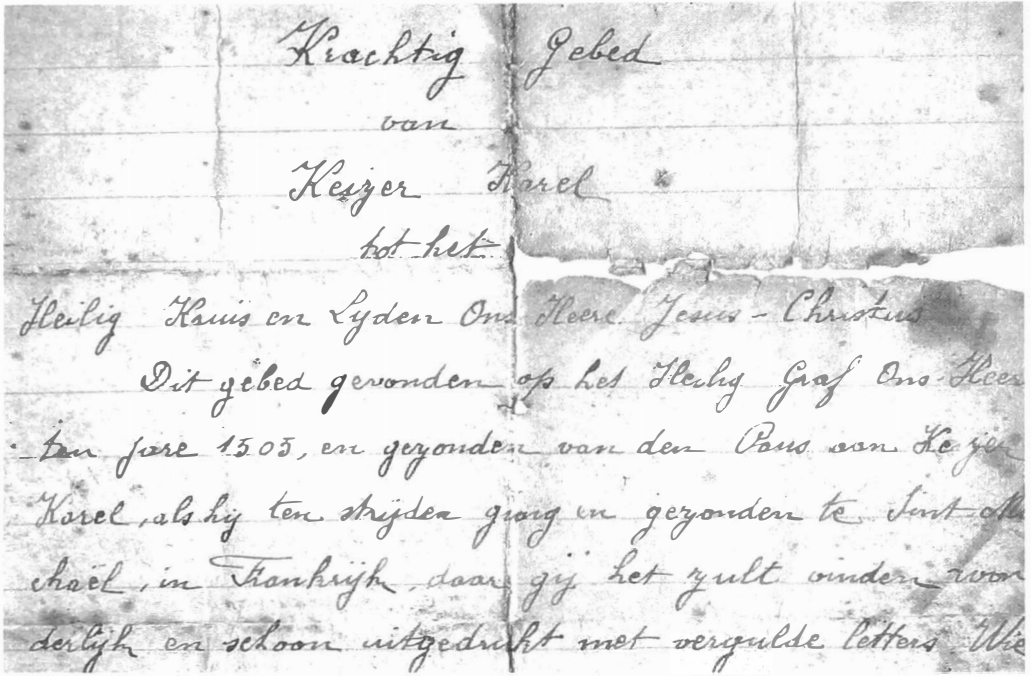 Krachtig Gebed
van
Keizer Karel
tot het
Heilig Kruis en Lyden Ons Heere Jesus - Christus
Dit gebed gevonden op het Heilig Graf Ons-Heer
ten jare 1505, en gezonden van den Paus aan Keizer
Karel, als hij ten strijden ging en gezonden te Sint Mi
chaël, in Frankrijk, daar gij het zult vinden won
derlijk en schoon uitgedrukt met vergulde letters. Wie